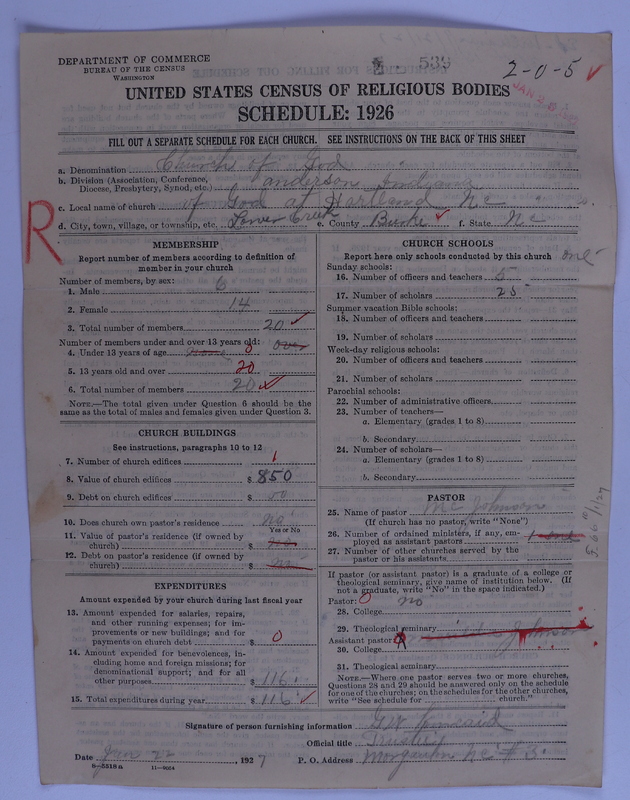 DEPARTMENT OF COMMERCE
BUREAU OF THE CENSUS
WASHINGTON
539
2-0-5
UNITED STATES CENSUS OF RELIGIOUS BODIES
SCHEDULE: 1926
FILL OUT A SEPARATE SCHEDULE FOR EACH CHURCH. SEE INSTRUCTIONS ON THE BACK OF THIS SHEET
a. Denomination Church of God
b. Division (Association, Conference, Diocese, Presbytery, Synod, etc.) anderson Indiana
c. Local name of church of God at Hartland NC
d. City, town, village, or township, etc. Lower Creek e. County Burke f. State NC
R
MEMBERSHIP
Report number of members according to definition of
member in your church
Number of members, by sex:
1. Male 6
2. Female 14
3. Total number of members 20
Number of members under and over 13 years old: over
4. Under 13 years of age 0
5. 13 years old and over 20
6. Total number of members 20
NOTE.—The total given under Question 6 should be the
same as the total of males and females given under Question 3.
CHURCH BUILDINGS
See instructions, paragraphs 10 to 12
7. Number of church edifices 1
8. Value of church edifices $ 850
9. Debt on church edifices $ 00
10. Does church own pastor's residence no
Yes or No
11. Value of pastor's residence (if owned by
church) $
12. Debt on pastor's residence (if owned by
church) $
EXPENDITURES
Amount expended by your church during last fiscal year
13. Amount expended for salaries, repairs,
and other running expenses; for im-
provements or new buildings; and for
payments on church debt $ 0
14. Amount expended for benevolences, in-
cluding home and foreign missions; for
denominational support; and for all
other purposes $ 116.
15. Total expenditures during year $ 116.
CHURCH SCHOOLS
Report here only schools conducted by this church one
Sunday schools:
16. Number of officers and teachers 5
17. Number of scholars 25
Summer vacation Bible schools:
18. Number of officers and teachers
19. Number of scholars
Week-day religious schools:
20. Number of officers and teachers
21. Number of scholars
Parochial schools:
22. Number of administrative officers
23. Number of teachers—
a. Elementary (grades 1 to 8)
b. Secondary
24. Number of scholars—
a. Elementary (grades 1 to 8)
b. Secondary
PASTOR
25. Name of pastor Mc Johnson
(If church has no pastor, write "None")
26. Number of ordained ministers, if any, em-
ployed as assistant pastors
27. Number of other churches served by the
pastor or his assistants
If pastor (or assistant pastor) is a graduate of a college or
theological seminary, give name of institution below. (If
not a graduate, write "No" in the space indicated.)
Pastor: 0 no
28. College
29. Theological seminary
Assistant pastor: Johnson
30. College
31. Theological seminary
NOTE.—Where one pastor serves two or more churches,
Questions 28 and 29 should be answered only on the schedule
for one of the churches; on the schedules for the other churches,
write "See schedule for church."
Signature of person furnishing information G W Kincaid
Official title Trustee
Date Jan 22, 1927 P. O. Address Morganton NC # 3.
8—5518a 11—9064